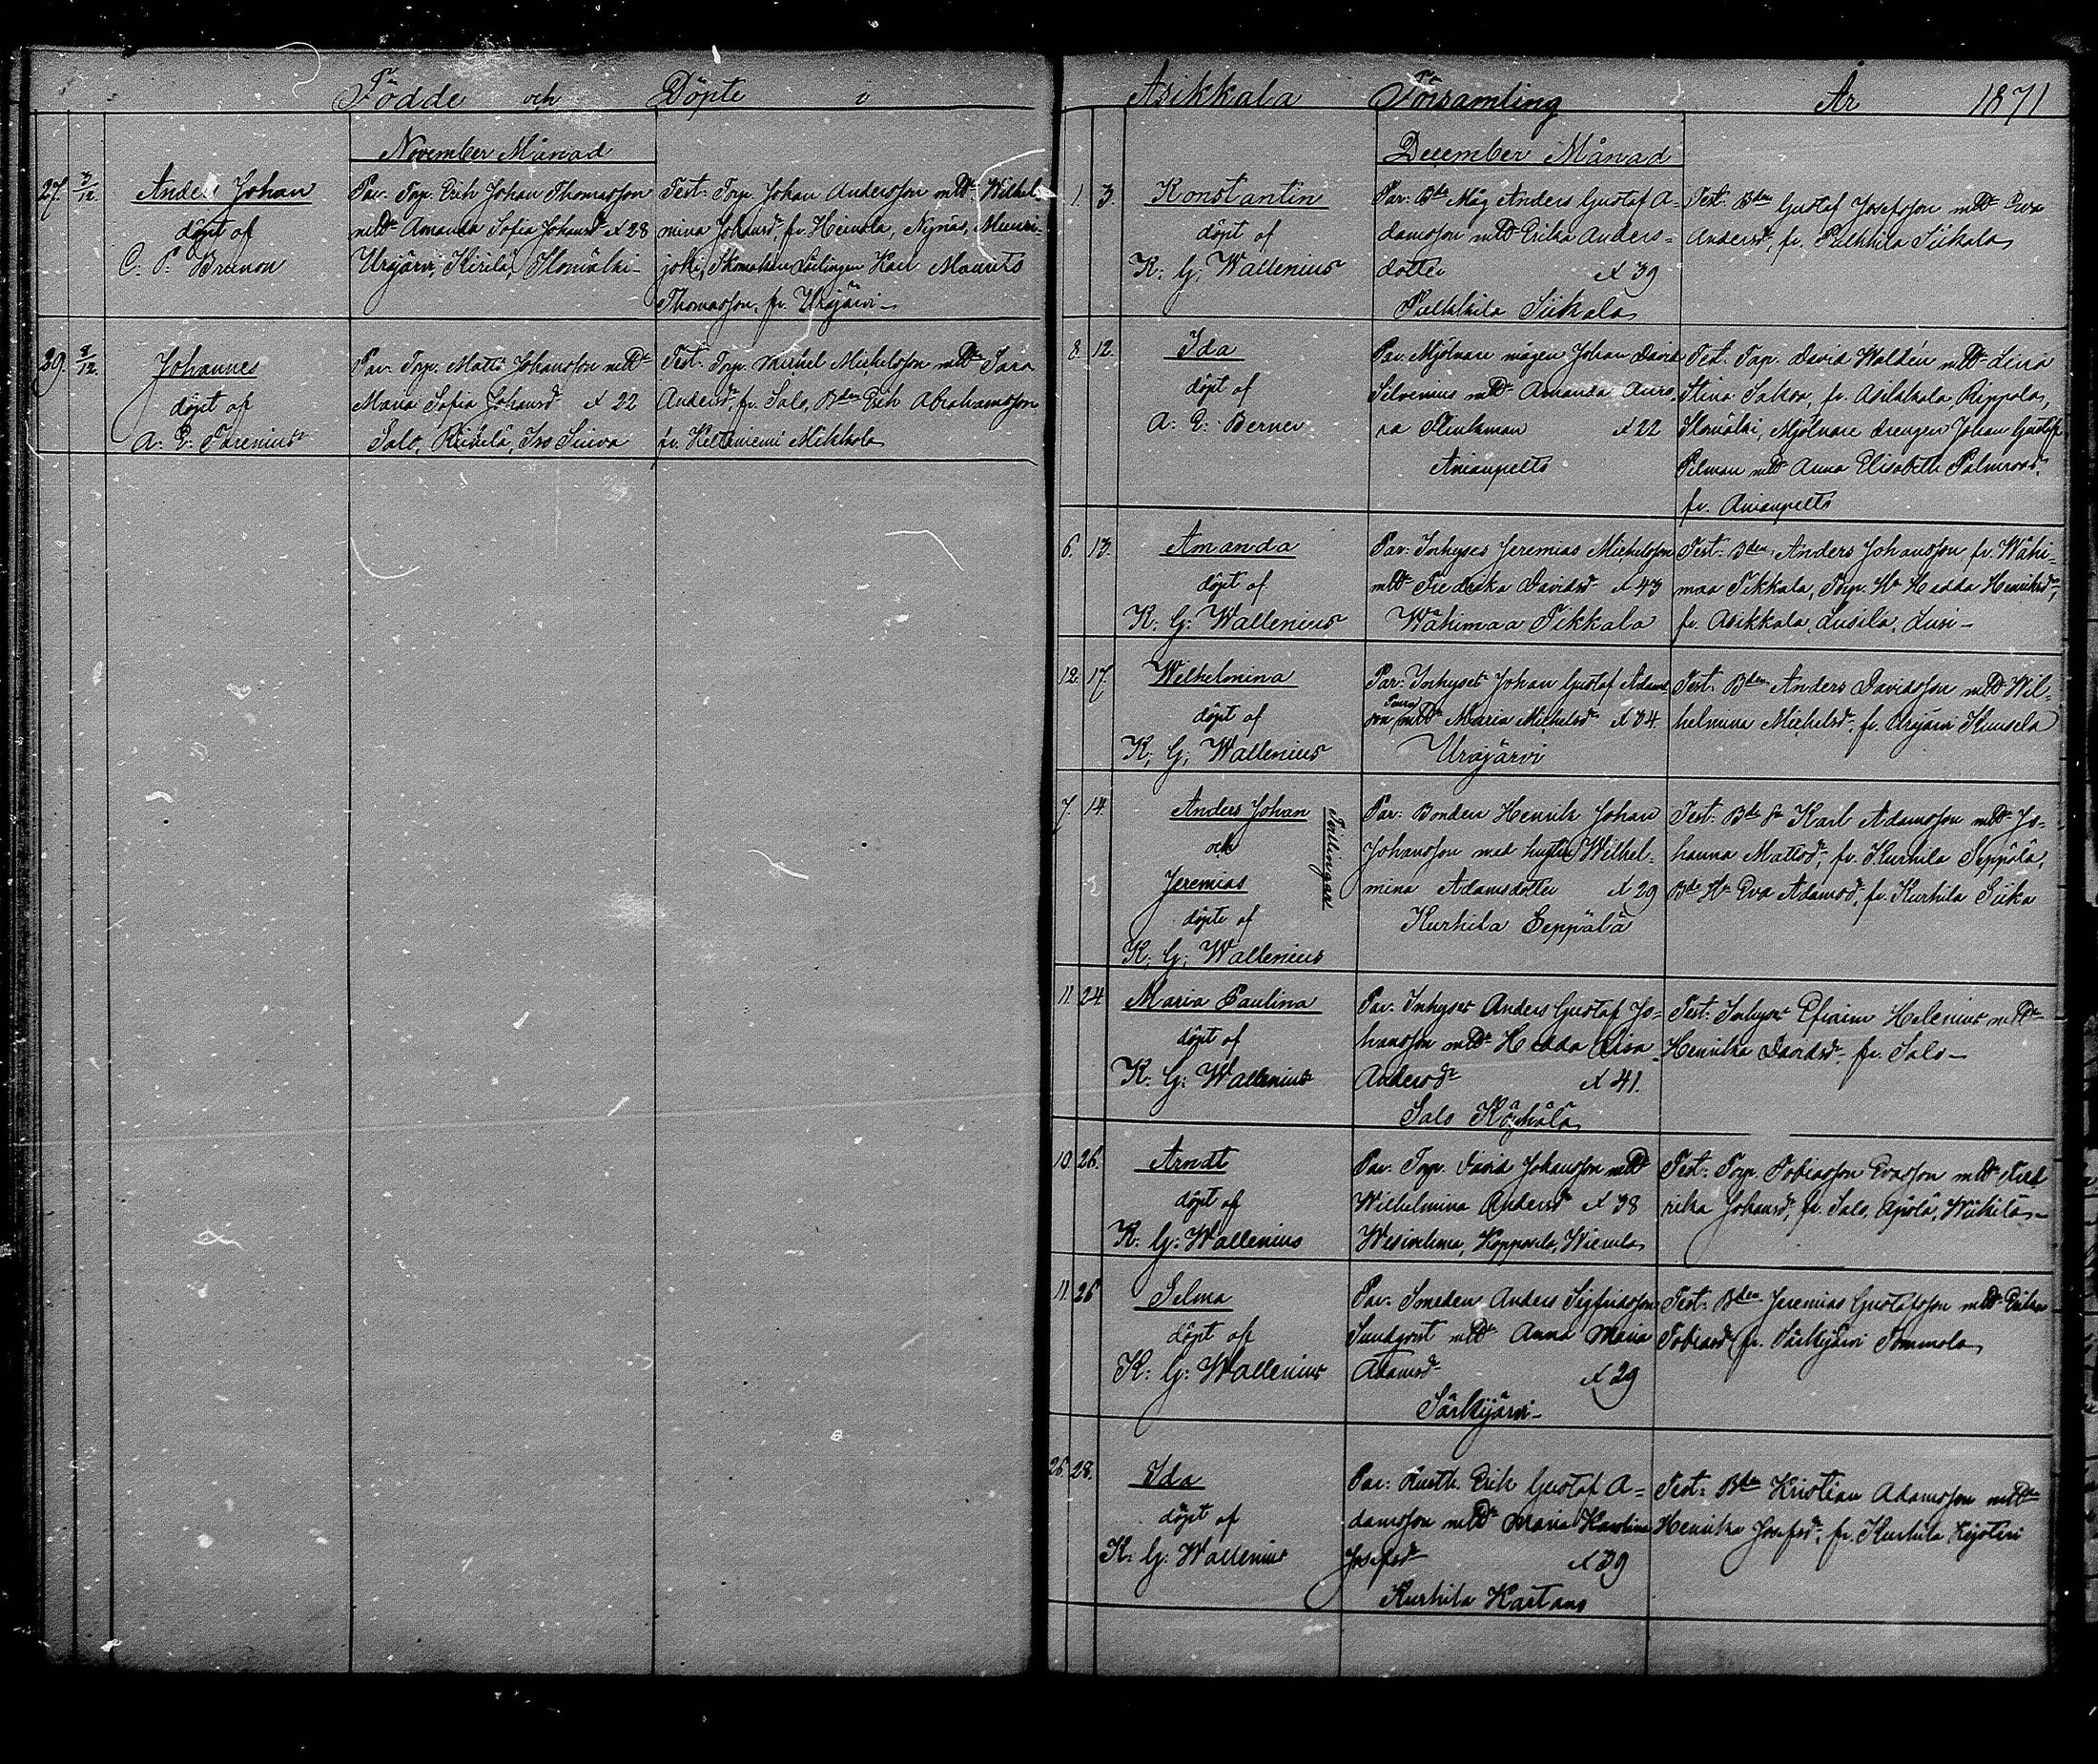 Födde och Döpte i
November Månad
27. 3/12. Anders Johan
döpt af
C. P. Brunou
Par. Torp. Erik Johan Thomasson
m Hu Amanda Sofia Johansdr 28
Urajärvi, Ilomäki
Test. Torp. Johan Andersson m Hu Wilhel-
mina Johansdr, fr. Heinola, Nynäs,
joki, Skomakare Lärlingen Karl Maurits
Thomasson, fr. Urajärvi
29. 8/12. Johannes
döpt af
A. E. Forenius
Par. Torp. Matts Johansson m Hu
Maria Sofia Johansdr 22
Salo,
Test. Torp. Michel Michelsson m Hu Sara
Andersdr, fr. Salo, Bden Erik Abrahamsson
fr. Keltaniemi Mikkola
Asikkala Församling År 1871
December Månad
1. 3. Konstantin
döpt af
K. G. Wallenius
Par. Bde Måg Anders Gustaf A=
damsson m Hu Erika Anders=
dotter 39
Pulkkila Siikala
Test. Bden Gustaf Josefsson m Hu Eva
Andersdr, fr. Pulkkila Siikala
8. 12. Ida
döpt af
A. E. Berner
Par. Mjölnare mågen Johan David
Silvenius m Hu Amanda Auro
ra Flinkman 22
Anianpelto
Test. Torp. David Waltén m Hu Lena
Stina, fr. Asikkala, Reppola,
Ilomäki, Mjölnare drengen Johan Gustaf
Pelman m Hu Anna Elisabeth Palmroos,
fr. Anianpelto
6. 13. Amanda
döpt af
K. G. Wallenius
Par. Inhyses Jeremias Michelsson
m Hu Fredrika Davidsdr 43
Wähimaa Tikkala
Test. Bden Anders Johansson fr. Wähi-
maa Tikkala, Torp. Hu Hedda Henriksdr,
fr. Asikkala, Lusila, Lusi
12. 17. Wilhelmina
döpt af
K. G. Wallenius
Par. Inhyses Johan Gustaf Adams
son m Hu Maria Michelsdr 34.
Urajärvi
Test. Bden Anders Davidsson m Hu Wil-
helmina Michelsdr, fr. Urajärvi Kuusela
7. 14. Anders Johan
och
Jeremias
Tvillingar
döpte af
K. G. Wallenius
Par. Bonden Henrik Johan
Johansson med hustru Wilhel-
mina Adamsdotter 29
Kurhila Seppälä
Test. Bde Sn Karl Adamsson m Hu Jo-
hanna Mattsdr, fr. Kurhila Seppälä,
Bde Hu Eva Adamsdr, fr. Kurhila Siika
11. 24 Maria Paulina
döpt af
K. G. Wallenius
Par. Inhyses Anders Gustaf Jo-
hansson m Hu Hedda Lisa
Andersdr 41.
Salo
Test. Inhyses Efraim Helenius m Hu
Henrika Davidsdr fr. Salo
10. 26. Arndt
döpt af
K. G. Wallenius
Par. Torp. David Johansson m Hu
Wilhelmina Andersdr 38
Wesivehma,
Test. Torp. Evasson m Hu Fred
rika Johansdr, fr. Salo,
11. 26 Selma
döpt af
K. G. Wallenius
Par. Smeden Anders Sigfridsson
Sundqvist m Hu Anna Maria
Adamsdr 29
Särkijärvi
Test. Bden Jeremias Gustafsson m Hu Erika
Tobiasdr fr. Särkijärvi Tommola
26. 28. Ida
döpt af
K. G. Wallenius
Par. Erik Gustaf A=
damsson m Hu Maria Karolina
Josefsdr 39
Kurhila Kartano
Test. Bden Kristian Adamsson m Hu
Henrika Josefsdr, fr. Kurhila